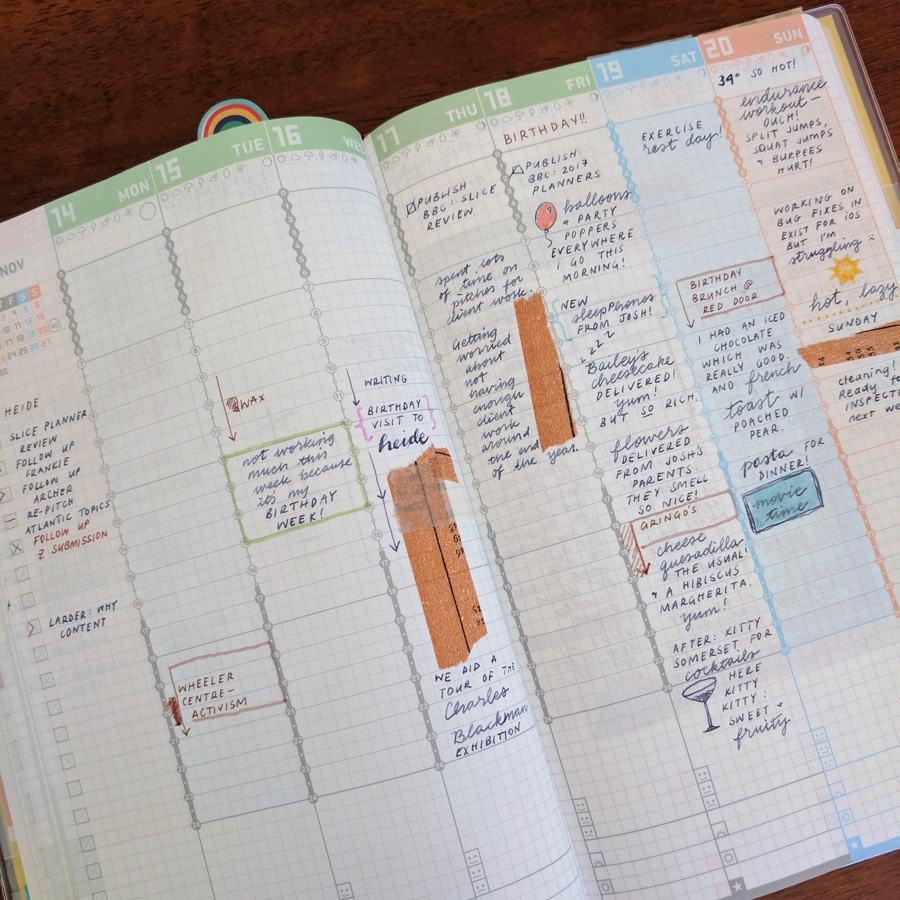 14 MON
15 TUE
16 WE
17 THU
18 FRI
19 SAT
20 SUN
NOV
HEIDE
SLICE PLANNER
REVIEW
FOLLOW UP
FRANKIE
FOLLOW UP
ARCHER
RE-PITCH
ATLANTIC TOPICS
FOLLOW UP
Z SUBMISSION
LARDER: WHY
CONTENT
WAX
not working
much this
week because
it's my
BIRTHDAY
WEEK!
WHEELER
CENTRE-
ACTIVISM
WRITING
BIRTHDAY
VISIT TO
heide
WE DID A
TOUR OF THE
Charles
Blackman
EXHIBITION
PUBLISH
BBC: SLICE
REVIEW
spent lots
of time on
pitches for
client work.
Getting
worried
about
not
having
enough
client
work
around
the end
of the year.
BIRTHDAY!!
PUBLISH
BBC: 2017
PLANNERS
balloons
+ PARTY
POPPERS
EVERYWHERE
I GO THIS
MORNING!
NEW
sleepPhones
FROM JOSH!
zzz
Bailey's
cheesecake
DELIVERED!
yum!
BUT SO RICH.
flowers
DELIVERED
FROM JOSH'S
PARENTS.
THEY SMELL
SO NICE!
GRINGO'S
cheese
quesadilla
THE USUAL!
+ A HIBISCUS
MARGHERITA.
yum!
AFTER: KITTY
SOMERSET FOR
cocktails
HERE
KITTY
KITTY:
SWEET +
fruity
EXERCISE
rest day!
BIRTHDAY
BRUNCH @
RED DOOR
I HAD AN ICED
CHOCOLATE
WHICH WAS
REALLY GOOD
AND french
toast W/
POACHED
PEAR.
pasta FOR
DINNER!
movie
time
34° SO HOT!
endurance
workout -
OUCH!
SPLIT JUMPS,
SQUAT JUMPS
+ BURPEES
HURT!
WORKING ON
BUG FIXES IN
EXIST FOR iOS
BUT I'M
struggling :(
hot, lazy
SUNDAY
cleaning!
Ready fo
INSPECTI
next we